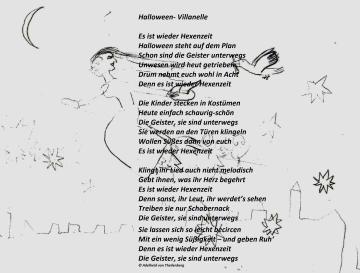 Halloween- Villanelle
Es ist wieder Hexenzeit
Halloween steht auf dem Plan
Schon sind die Geister unterwegs
Unwesen wird heut getrieben
Drum nehmt euch wohl in Acht
Denn es ist wieder Hexenzeit
Die Kinder stecken in Kostümen
Heute einfach schaurig-schön
Die Geister, sie sind unterwegs
Sie werden an den Türen klingeln
Wollen Süßes dann von euch
Es ist wieder Hexenzeit
Klingt ihr Lied auch nicht melodisch
Gebt ihnen, was ihr Herz begehrt
Es ist wieder Hexenzeit
Denn sonst, ihr Leut, ihr werdet's sehen
Treiben sie nur Schabernack
Die Geister, sie sind unterwegs
Sie lassen sich so leicht becircen
Mit ein wenig Süßigkeit – und geben Ruh'
Denn es ist wieder Hexenzeit
Die Geister, sie sind unterwegs